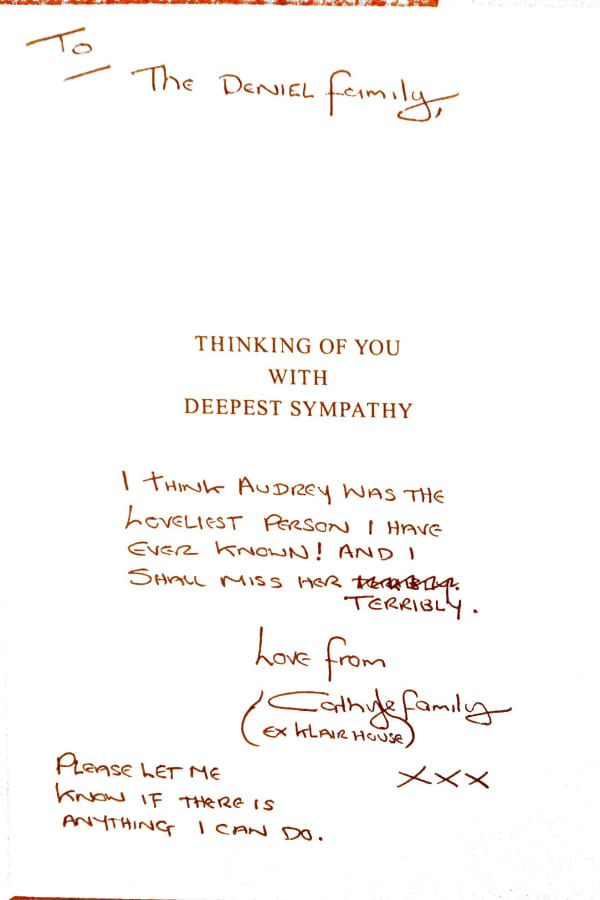 To
The DENIEL family,
THINKING OF YOU
WITH
DEEPEST SYMPATHY
I THINK AUDREY WAS THE
LOVELIEST PERSON I HAVE
EVER KNOWN! AND I
SHALL MISS HER
TERRIBLY.
Love from
Cathy & family
(EX KLAIR HOUSE)
XXX
PLEASE LET ME
KNOW IF THERE IS
ANYTHING I CAN DO.